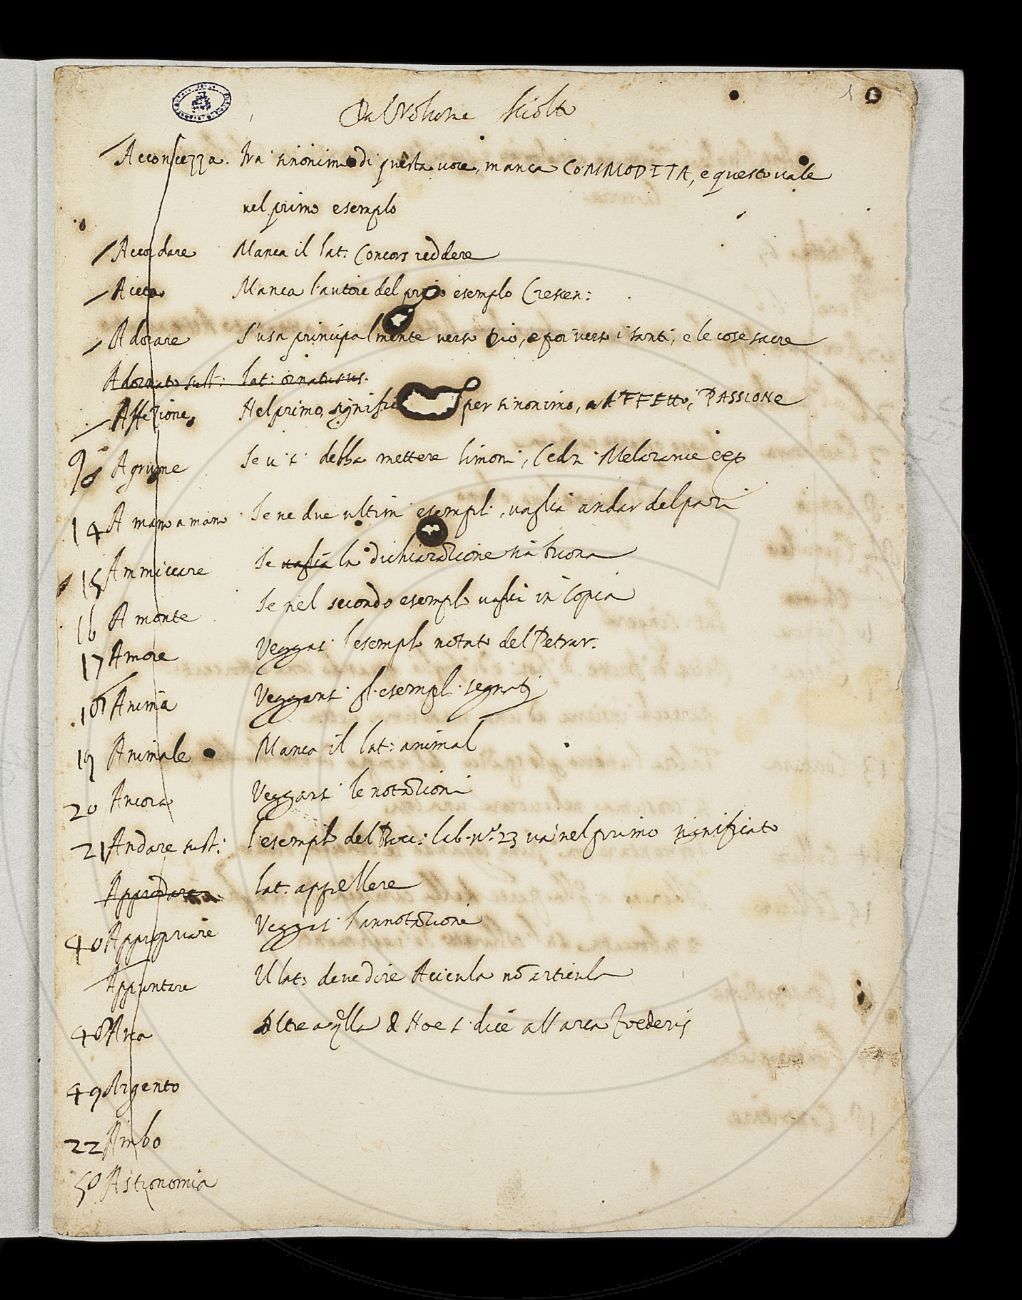 Dal Volume sciolto
1
Acconcezza. tra sinonimi di questa voce, manca COMMODITA, e questo vale
nel primo esemplo
Accordare Manca il lat: Concors reddere
Aceto Manca l'autore del primo esemplo Crescen:
Adorare S'usa principalmente verso Dio, e poi verso i santi, e le cose sacre
Adornato sust: lat: ornatus us.
Affezione Nel primo, signific per sinonimo, a AFFETTO, PASSIONE
Agrume Se vi si debba mettere limoni, Cedri Melarance
14 A mano a mano Se ne due ultimi esempli, vaglia andar del pari
15 Ammiccare Se vaglia la dichiarazione sia buona
16 A monte Se nel secondo esemplo vaglia in Copia
17 Amore Veggasi l'esemplo notato del Petrar.
18 Anima Veggansi gl'esempli segnati
19 Animale Manca il lat: animal
20 Ancora Veggansi le notazioni
21 Andare sust: l'esemplo del Bocc: lib. nº 23 va nel primo significato
Approdare lat: appellere
40 Appropriare Veggasi l'annotazione
Appuntare Il lat: deve dire Acicula nõ articula
48 Arca Oltr'a q̃lla di Noe si dice all'arca foederis
49 Argento
22 Ambo
50 Astronomia